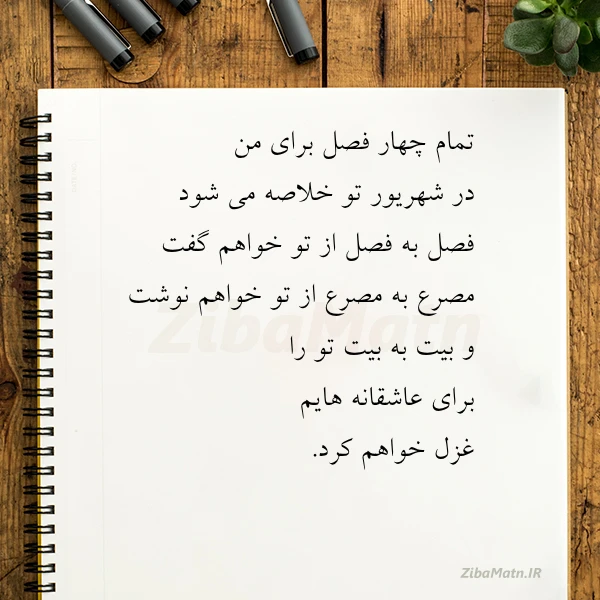 تمام چهار فصل برای من
در شهریور تو خلاصه می شود
فصل به فصل از تو خواهم گفت
مصرع به مصرع از تو خواهم نوشت
و بیت به بیت تو را
برای عاشقانه هایم
غزل خواهم کرد.
ZibaMatn
ZibaMatn.IR